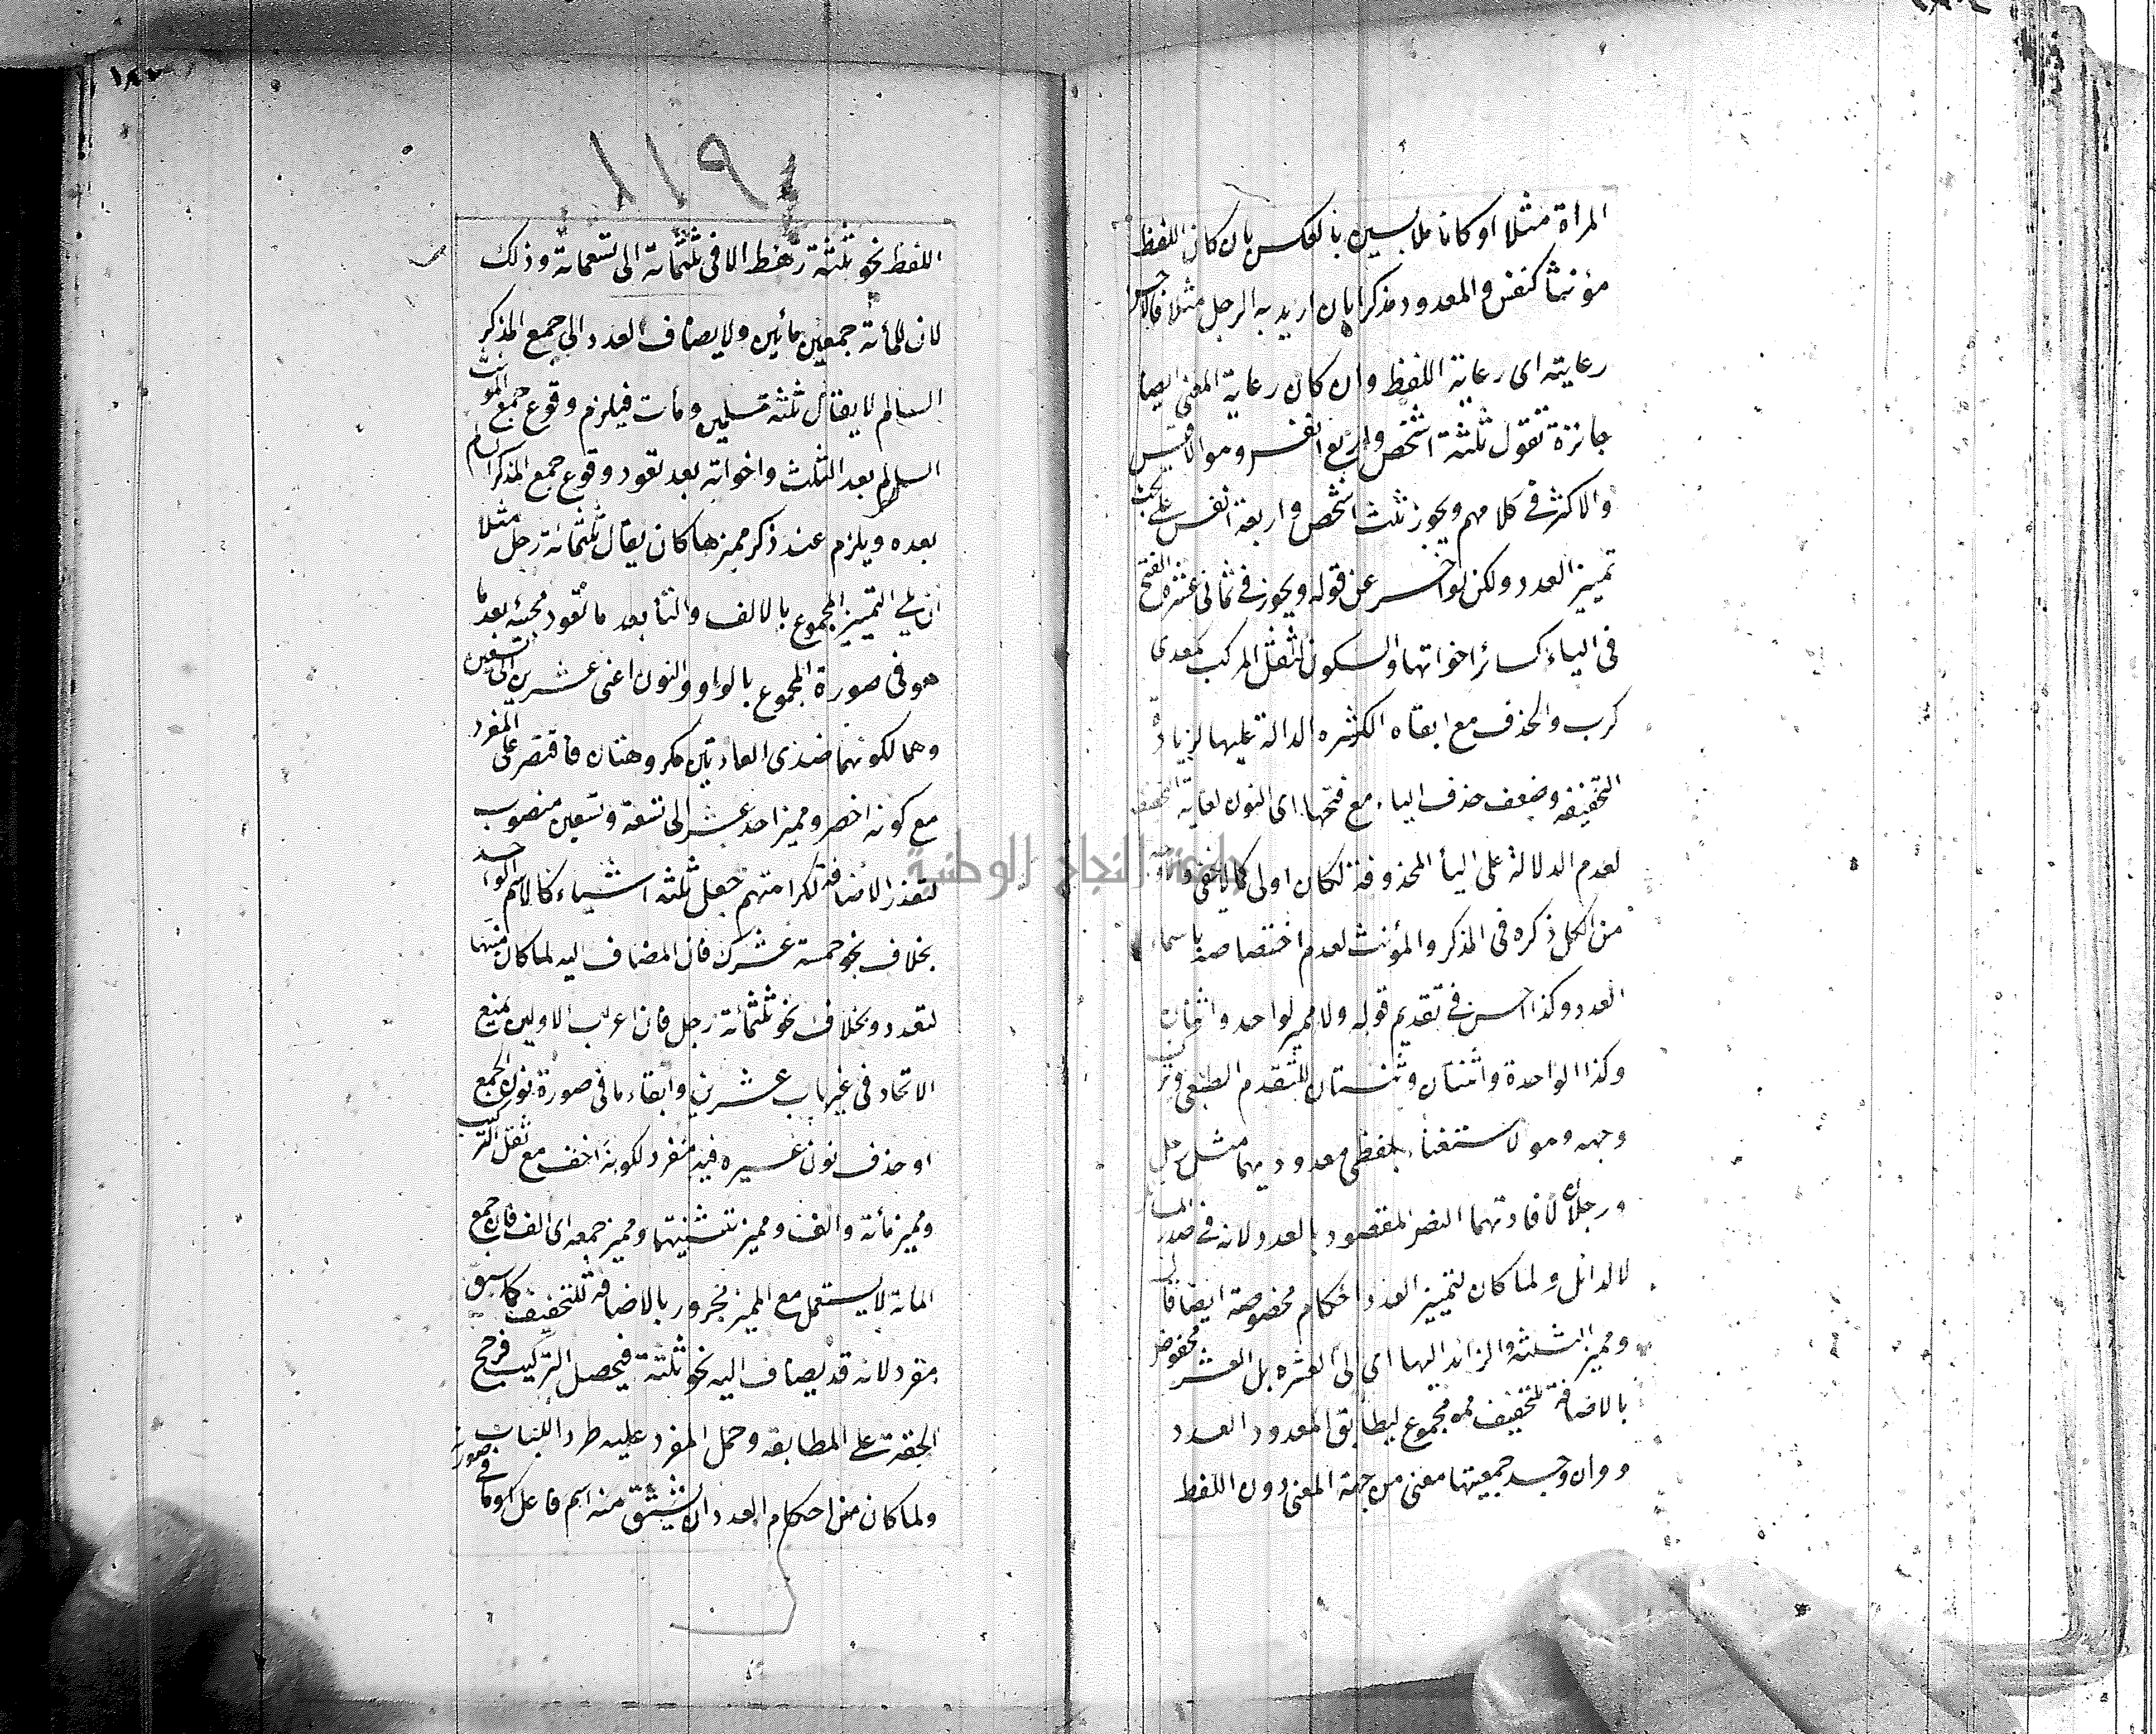 المرأة مثلا او كانا ملابسين بالعكس بان كان اللفظ
مؤنثا كنفس والمعدود مذكرا بان اريد به الرجل مثلا فالاحسن
رعايته اى رعاية اللفظ وان كان رعاية المعنى ايضا
جائزة تقول ثلثة اشخص واربع انفس وهو الاقيس
والاكثر فى كلامهم ويجوز ثلث اشخص واربعة انفس على
تمييز العدد ولكن لو اخر عن قوله ويجوز فى ثمانى عشرة الفتح
فى الياء كسائر اخواتها والسكون لثقل المركب كمعدى
كرب والحذف مع ابقاء الكسرة الدالة عليها لزيادة
التخفيف وضعف حذف الياء مع فتحها اى النون لغاية التخفيف
لعدم الدلالة على الياء المحذوفة لكان اولى كما لا يخفى
من الكل ذكره فى المذكر والمؤنث لعدم اختصاصه باسماء
العدد وكذا احسن فى تقديم قوله ولا مميز لواحد واثنان
وكذا الواحدة واثنتان وثنتان للتقدم الطبعى
وجهه وهو لاستغناء بلفظى معدوديهما مثل رجل
ورجلان لافادتهما النص المقصود بالعدد لانه فى صدر
لا لدائل ولما كان لتمييز العدد احكام مخصوصة ايضا قال
ومميز الثلثة والزائد اليها اى الى العشرة بل العشر مخفوض
بالاضافة للتخفيف مجموع ليطابق المعدود العدد
وان وجد جمعيتها معنى من جهة المعنى دون اللفظ
١٨٧
١١٩
اللفظ نحو ثلثة رهط الا فى ثلثمائة الى تسعمائة وذلك
لان للمائة جمعين مائين ولا يضاف العدد الى جمع المذكر
السالم لا يقال ثلثة مسلمين ومأت فيلزم وقوع جمع المؤنث
السالم بعد الثلث واخواته بعد تعود وقوع جمع المذكر السالم
بعده ويلزم عند ذكر مميزها كان يقال ثلثمائة رجل مثلا
ان يلى التمييز المجموع بالالف والتاء بعد ما تعود مجيئه بعد ما
هو فى صورة المجموع بالواو والنون اعنى عشرين الى تسعين
وهما لكونهما ضدى العادتين مكروهتان فاقتصر على المفرد
مع كونه اخصر ومميز احد عشر الى تسعة وتسعين منصوب
لتعذر الاضافة لكراهتهم جعل ثلثة اشياء كالاسم الواحد
بخلاف نحو خمسة عشرك فان المضاف اليه لما كان
لتعدد وبخلاف نحو ثلثمائة رجل فان اعراب الاولين يمنع
الاتحاد فى غير باب عشرين وابقاء ما فى صورة نون الجمع
او حذف نون غيره فيه مفرد لكونه اخف مع ثقل التركيب
ومميز مائة والف ومميز تثنيتهما ومميز جمعه اى الف فان جمع
المائة لا يستعمل مع المميز مجرور بالاضافة للتخفيف كما سبق
مفرد لانه قد يضاف اليه نحو ثلثة فيحصل التركيب فرجح
الخفة على المطابقة وحمل المفرد عليه طردا للباب
ولما كان من احكام العدد ان يشتق منه اسم فاعل او ما فى صورته
جامعة النجاح الوطنية